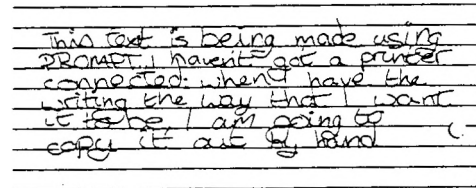 This text is being made using
PROMPT. I havent got a printer
connected. When I have the
writing the way that I want
it to be, I am going to
copy it out by hand